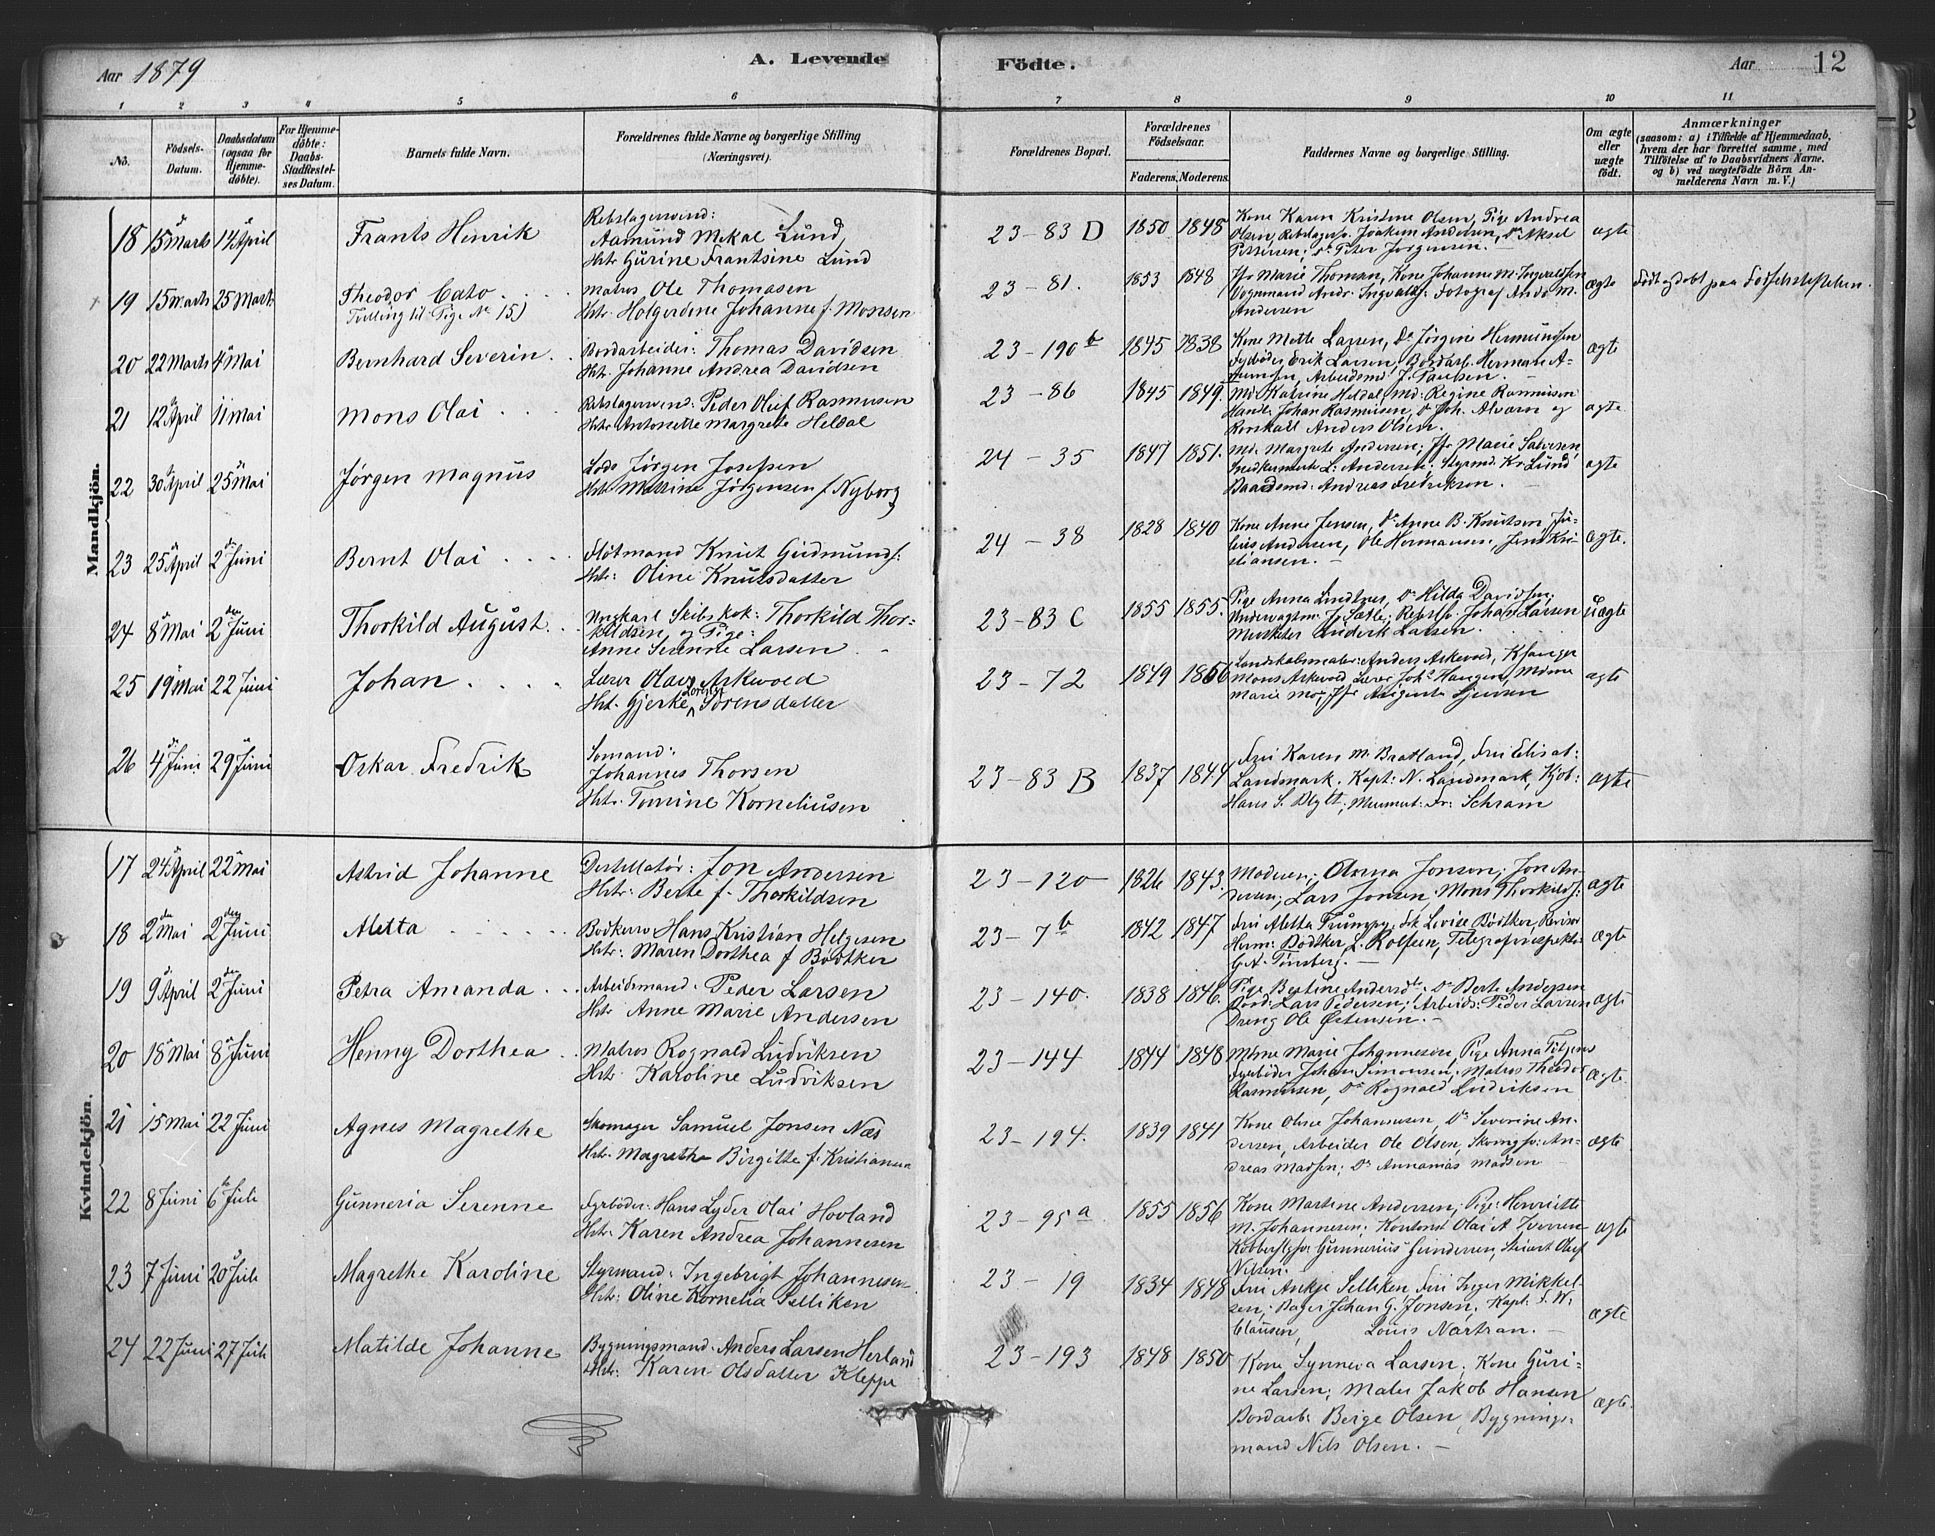 Aar 1879
A. Levende Födte.
Aar 12
1 2 3 4 5 6 7 8 9 10 11
No.
Födsels-Datum.
Daabsdatum (ogsaa for Hjemme-döbte).
For Hjemme-döbte: Daabs-Stadfæstel-ses Datum.
Barnets fulde Navn.
Forældrenes fulde Navne og borgerlige Stilling (Næringsvei).
Forældrenes Bopæl.
Forældrenes Födselsaar.
Faderens. Moderens.
Faddernes Navne og borgerlige Stilling.
Om ægte eller uægte födt.
Anmærkninger
(saasom: a) i Tilfælde af Hjemmedaab, hvem der har forrettet samme, med Tilföielse af to Daabsvidners Navne. og b) ved uægtefödte Börn An-melderens Navn m. V.)
Mandkjön.
18 15 Marts 14 April Frants Hinrik
Rebslagersvend:
Aamund Mikal Lund
Hstr Gurine Frantsine Lund
23-83 D 1850 1848
Kone Karen Kristine Olsen, Pige Andrea
Olsen, Rebslagersv. Joakim Andersen, Do Aksel
Pettersen; Do Peter Jørgensen.
ægte
19 15 Marts 25 Marts Theodor Cato
Tvilling til Pige No 15)
Matros Ole Thomasen
Hstr. Holgerdine Johanne f. Monsen
23-81. 1853 1848
Jfr Marie Thoman, Kone Johanne M. Ingvaldsen
Vognmand Andr. Ingvalds: Fotograf Andr M.
Andersen
ægte
Født og døbt paa Fødselsstiftelsen.
20 22 Marts 4 Mai Bernhard Severin
Bordarbeider: Thomas Davidsen
Hstr. Johanne Andrea Davidsen
23-190 b 1845 1838
Kone Mette Larsen, Do Jørgine Hermundsen
Fyrbøder Erik Larsen; Bordarb. Herman A-
Arbeidsmd J. Paulsen.
ægte
21 12 April 11 Mai Mons Olai
Rebslagersvend: Peder Oluf Rasmusen
Hstr Antonette Margrete Heldal
23-86 1845 1849.
Md. Katrine Heldal, Md: Regine Rasmusen
Handl. Johan Rasmusen, Do Joh. Alvarn og
Anders Olsen.
ægte
22 30 April 25 Mai Jørgen Magnus
Lods Jørgen Josefsen
Hstr. Massine Jørgensen f. Nyborg
24-35 1847 1851.
Md. Margrete Andersen; Jfr Marie Salvesen,
Snedkermester L. Andersen. Styrmd. Kr. Lund
Baadsmd: Andreas Fredriksen.
ægte
23 25 April 2 Juni Bernt Olai
Fløtmand Knut Gudmunds:
Hstr: Oline Knutsdatter
24-38 1828 1840
Kone Anne Jensen, Do Anne B. Knutsen, Ju-
lius Andersen, Ole Hermansen, Jens Kri-
stiansen.
ægte.
24 8 Mai 2 Juni Thorkild August
Ungkarl Skibskok: Thorkild Thor-
kildsen, og Pige:
Anne Serinne Larsen
23-83 C 1855 1855.
Pige Anna Lindtner, Do Hilda Davidsen;
J. Sætle; Rebslsv: Johan Larsen
Musketer Andreas Larsen.
Uægte
25 19 Mai 22 Juni Johan
Lærer Olav Askevold
Hst. Gjerke Lovise Sørensdatter
23-72 1849 1856
Landskabsmaler: Anders Askevold, Kjøbmd
Mons Askevold Lærer Johs Haugen, Mdme
Marie Moe, Jfr Augusta Jensen
ægte
26 4 Juni 29 Juni Oskar Fredrik
Sømand:
Johannes Thorsen
Hstr. Tomine Korneliusen
23-83 B 1837 1844
Fru Karen M. Bratland, Fru Elisa:
Landmark. Kapt: N. Landmark, Kjøb:
Hans S. Blytt, Fr: Schram
ægte
Kvindekjön.
17 24 April 22 Mai Astrid Johanne
Destillatør: Jon Andersen
Hstr: Berte f. Thorkildsen
23-120 1826 1843.
Moderen; Anna Jonsen; Jon An-
dersen, Lars Jonsen, Mons Thorkilds:
ægte
18 2 Mai 2 Juni Aletta
Bødkersv Hans Kristian Helgesen
Hstr: Maren Dorthea f Bødtker
23-7 b 1842 1847
Fru Aletta Trumpy, frk Lovise Bødtker, Revisor
Herm: Bødtker, L. Rolfsen, Telegrafinspektør
C. A. Tønsberg.
ægte
19 9 April 2 Juni Petra Amanda
Arbeidsmand: Peder Larsen
Hstr Anne Marie Andersen
23-140. 1838 1846.
Pige Bertine Andersdtr. Do Berte Andersen
Bord: Lars Pedersen; Arbeids: Peder Larsen
Dreng Ole Østensen.
ægte
20 18 Mai 8 Juni Henny Dorthea
Matros Rognald Ludviksen
Hstr Karoline Ludviksen
23-144 1844 1848
Mdme Marie Johannesen, Pige Anna
Fyrbøder Johan Simonsen, Matros Theodor
Rasmusen, Do Rognald Ludviksen
ægte.
21 15 Mai 22 Juni Agnes Magrethe
Skomager Samuel Jonsen Næs
Hstr. Magrethe Birgitte f. Kristiansen
23-194. 1839 1841
Kone Oline Johannesen, Do Severine An-
dersen, Arbeider Ole Olsen, Skomgsv: An-
dreas Madsen; Do Annanias Madsen
ægte
22 8 Juni 6 Juli Gunneria Serenne
Fyrbøder: Hans Lyder Olai Hovland
Hstr: Karen Andrea Johannesen
23-95 a 1855 1856
Kone Martine Andersen; Pige Henriette
M. Johannesen; Kontorist Olai A. Iversen
Kobberslgsv: Gunnerius Gundersen, Stuert Oluf
Nilsen.
ægte
23 7 Juni 20 Juli Magrethe Karoline
Styrmand: Ingebrigt Johannesen
Hstr: Oline Kornelia Selliken
23-19 1834 1848
Fru Ankje Selliken, Fru Inger Mikkel-
sen; Bager Johan G. Jonsen, Kapt: F. W.
Clausen, Louis Nartran.
ægte
24 22 Juni 27 Juli Matilde Johanne
Bygningsmand: Anders Larsen Herland
Hstr: Karen Olsdatter Kleppe
23-193 1848 1850
Kone Synneva Larsen; Kone Guri-
ne Larsen; Maler Jakob Hansen
Bordarb: Berge Olsen, Bygnings-
mand Nils Olsen.
ægte.